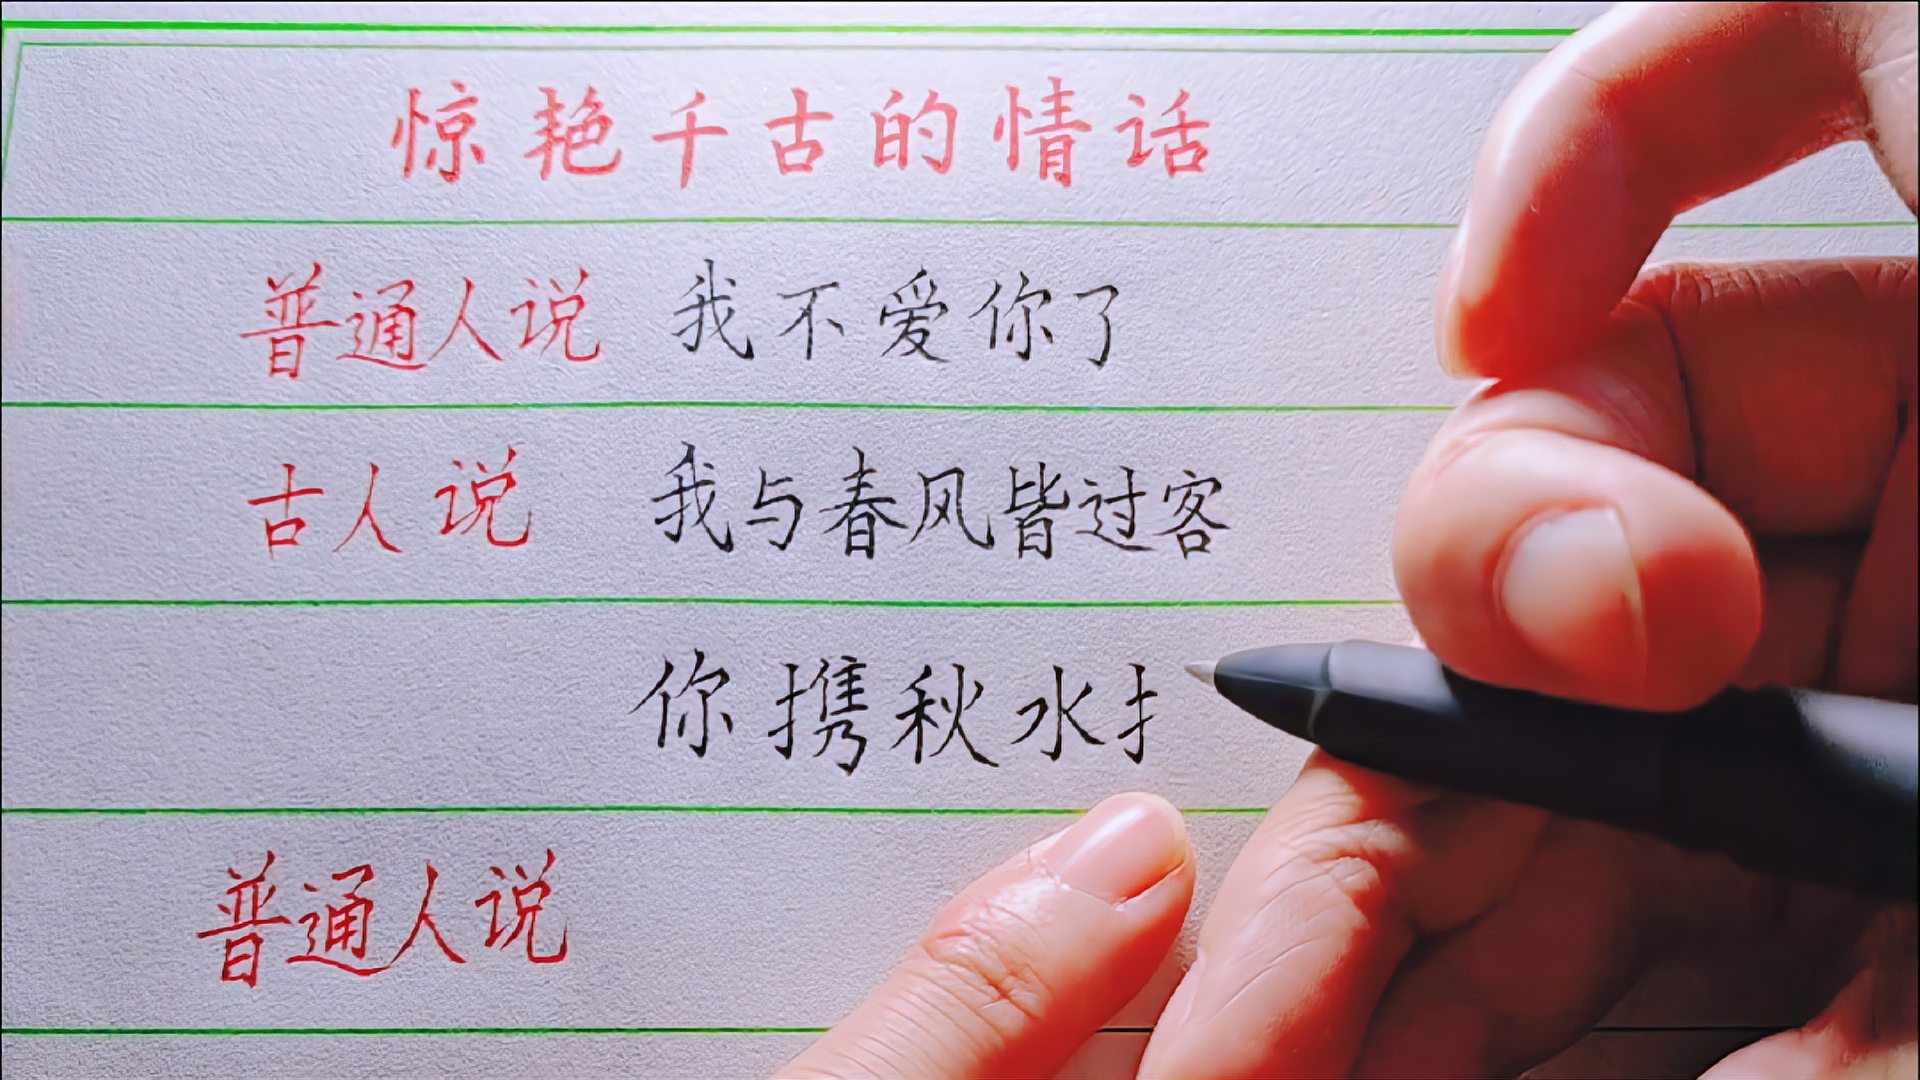 惊艳千古的情话
普通人说 我不爱你了
古人说 我与春风皆过客
你携秋水扌
普通人说